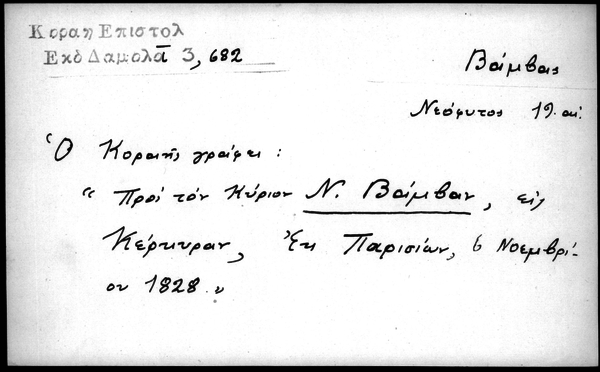 Κοραη Επιστολ
Εκδ Δαμαλᾶ 3, 682
Βάμβας
Νεόφυτος 19. αἰ.
Ὁ Κοραῆς γράφει :
" Πρὸς τὸν Κύριον Ν. Βάμβαν, εἰς
Κέρκυραν, Ἐκ Παρισίων, 6 Νοεμβρί-
ου 1828. "